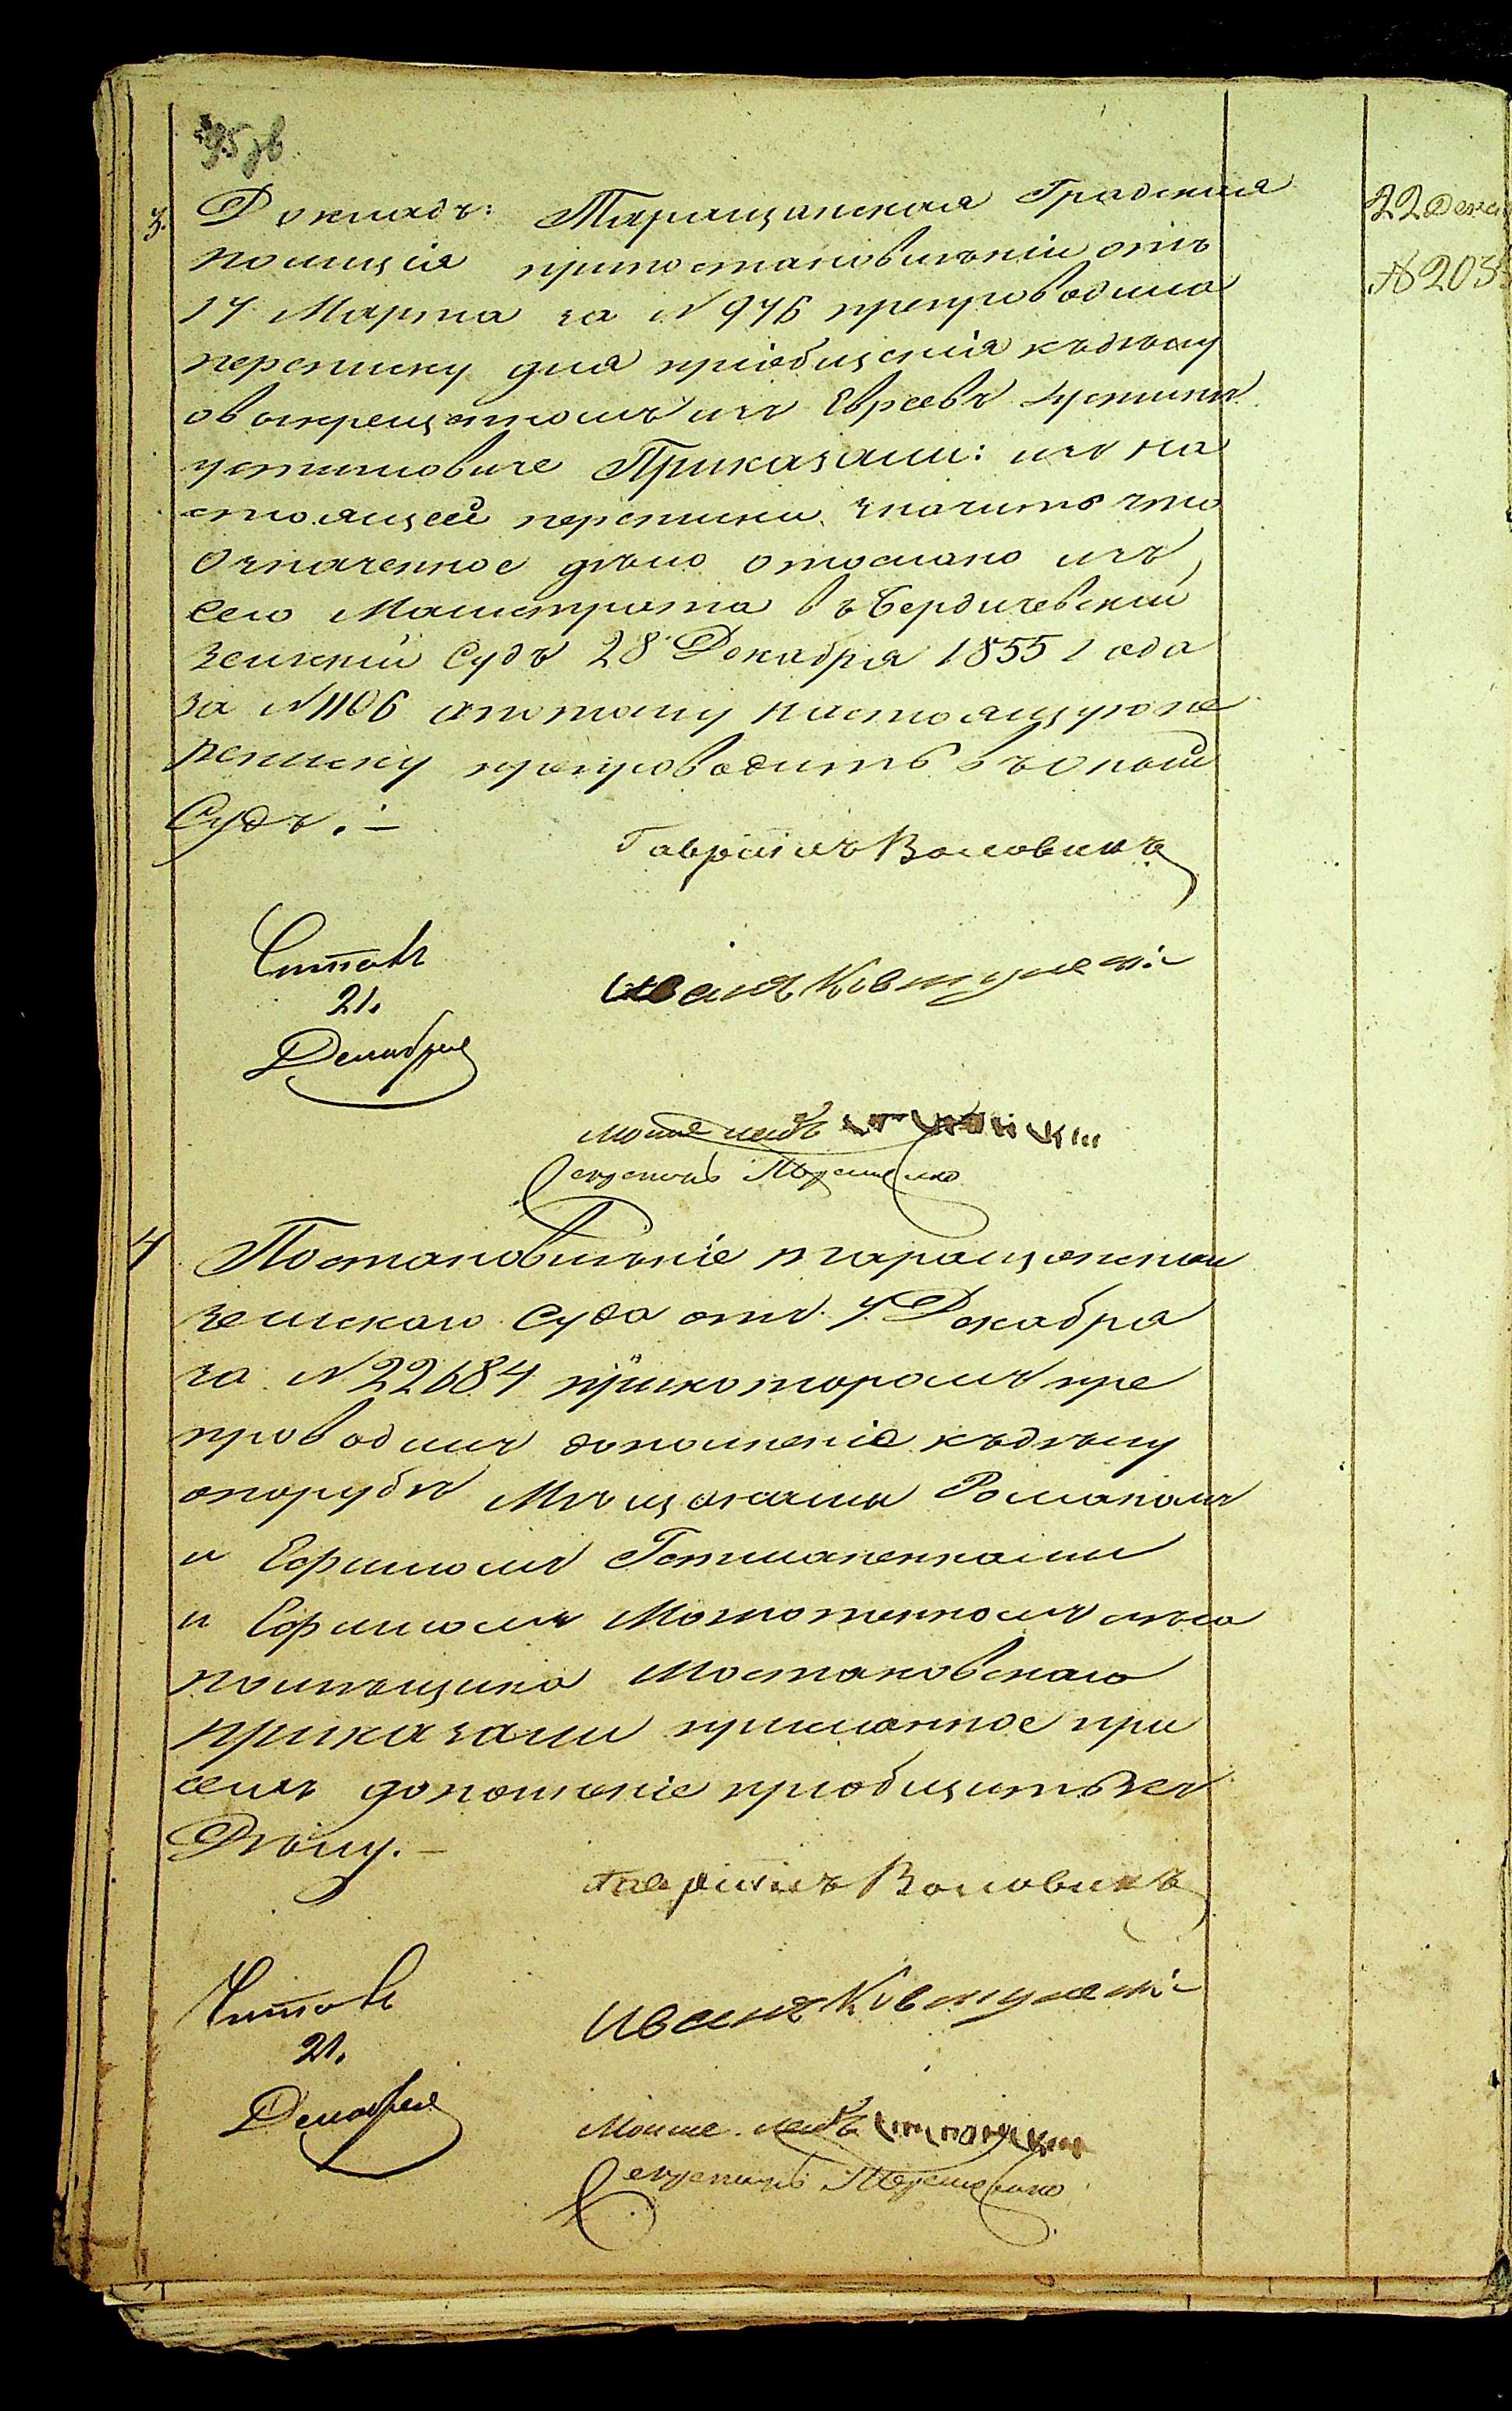 95 зв
3.
Докладъ: Таращанская Градская
полиція припостановленіи отъ
17 Марта за N 976 препроводила
переписку для пріобщенія къдѣлу
овыкрещенномъ изъ Евреевъ Устинѣ
Устимовиче Приказали: изъ на
стоящей переписки значитъ что
означенное дѣло отослано изъ
сего Магистрата въ Бердичевскій
земскій Судъ 28 Декабря 1855 года
за N 1106 апотому настоящую пе
реписку препроводить въ оный
Судъ. –
22 Дека
№ 203
Гавріилъ Воловикъ
Читалъ
21.
Декабря
Иванъ Ковтуне
Мошко Лейбъ
Секретарь Терещенко
4
Постановленіе Таращанскаго
земскаго Суда отъ 7 Декабря
за N 22684 прикоторомъ пре
проводилъ дополненіе къдѣлу
опорубкѣ Мѣщанами Романомъ
и Ефимомъ Гетманенками
и Ефимомъ лѣса
помѣщика Мостаковскаго
приказали присланное при
семъ дополненіе пріобщить къ
Дѣлу. –
Гавріилъ Воловикъ
Читалъ
21.
Декабря
Иванъ Ковтуне
Мошко Лейбъ
Секретарь Терещенко